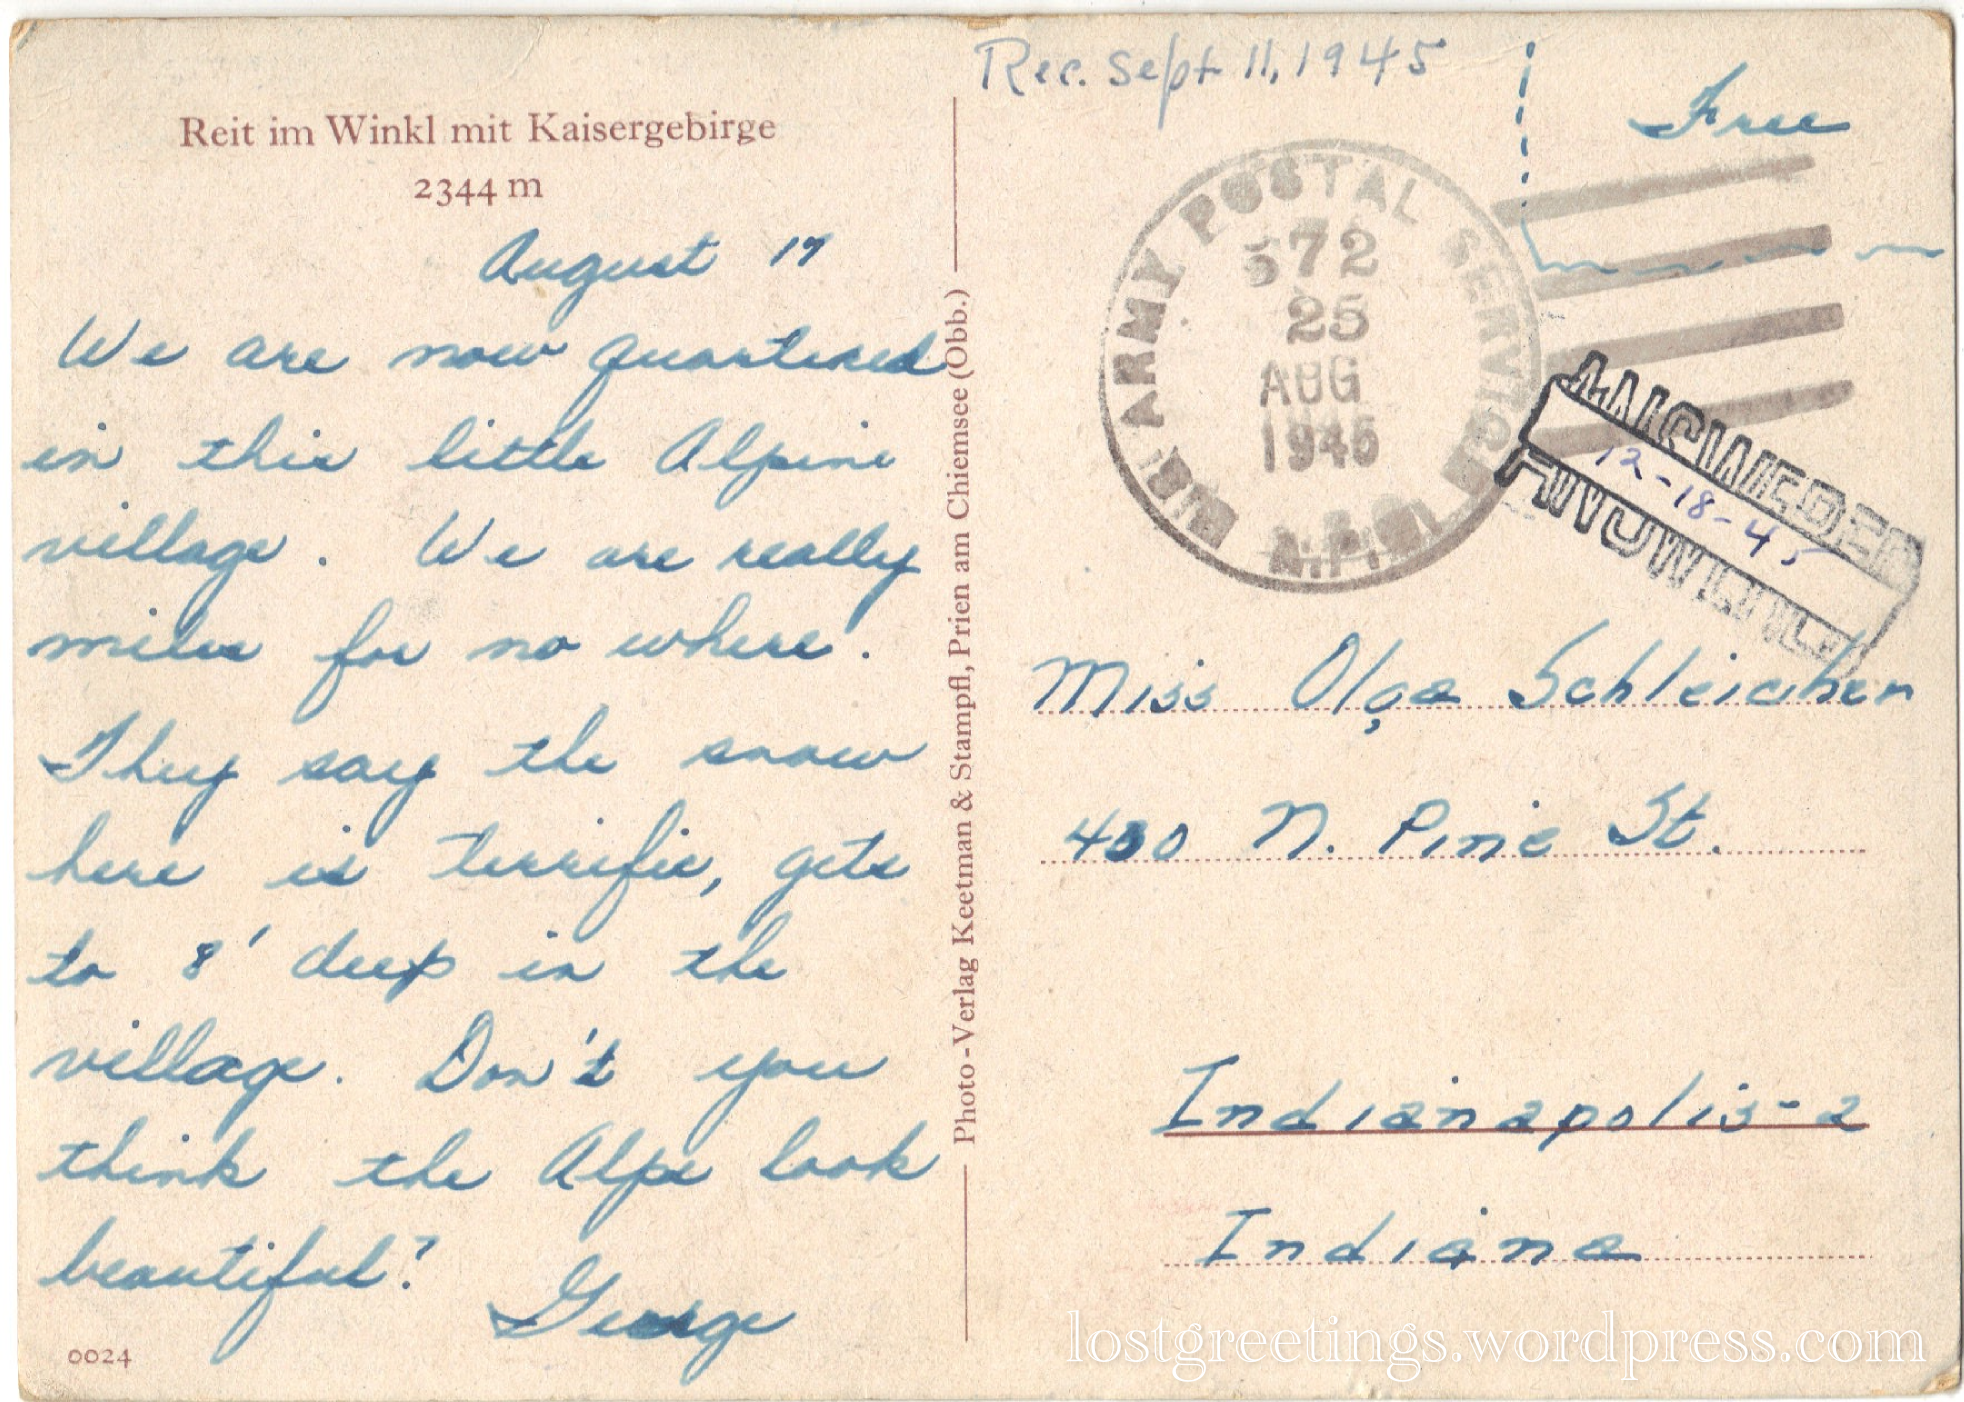 Reit im Winkl mit Kaisergebirge
2344 m
August 17
We are now quartered
in this little Alpine
village. We are really
miles for no where.
They say the snow
here is terrific, gets
to 8' deep in the
village. Don't you
think the Alps look
beautiful?
George
0024
Photo-Verlag Keetman & Stampfl, Prien am Chiemsee (Obb.)
Rec. Sept 11, 1945
Free
U.S. ARMY POSTAL SERVICE
572
25
AUG
1945
A.P.O.
ANSWERED
12-18-45
Miss Olga Schleicher
400 N. Pine St.
Indianapolis-2
Indiana
lostgreetings.wordpress.com